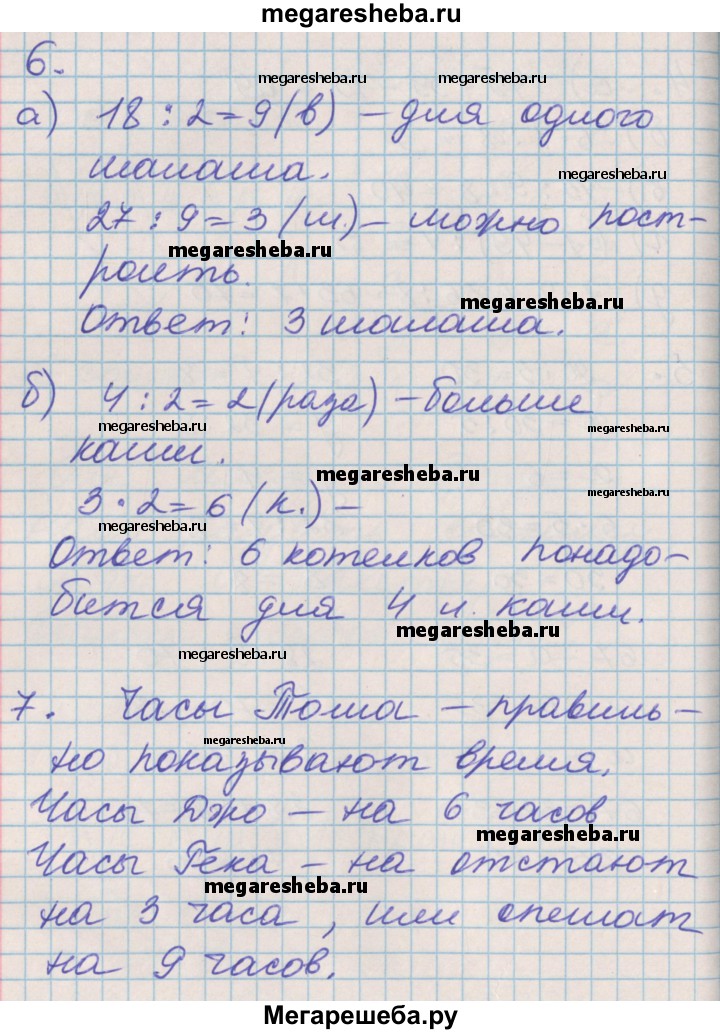 megaresheba.ru
6.
megaresheba.ru megaresheba.ru
а) 18 : 2 = 9 (в) – для одного
шалаша.
megaresheba.ru
27 : 9 = 3 (ш.) – можно пост-
megaresheba.ru
роить.
megaresheba.ru
Ответ: 3 шалаша.
б) 4 : 2 = 2 (раза) – больше
megaresheba.ru megaresheba.ru
каши.
megaresheba.ru
3 · 2 = 6 (к.) –
megaresheba.ru megaresheba.ru
Ответ: 6 котелков понадо-
бится для 4 л. каши.
megaresheba.ru
megaresheba.ru
7. Часы Тома – правиль-
megaresheba.ru
но показывают время.
Часы Джо – на 6 часов
megaresheba.ru
Часы Гека – на отстают
megaresheba.ru
на 3 часа, или спешат
на 9 часов.
megaresheba.ru
Мегарешеба.ру